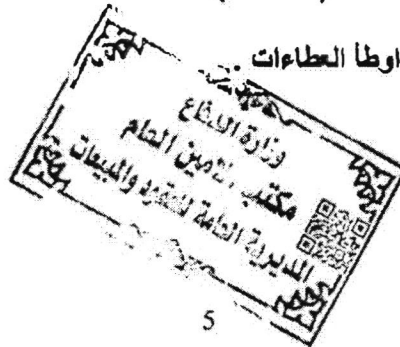 اوطأ العطاءات
وزارة الدفاع
مكتب الامين العام
المديرية العامة للعقود والمبيعات
5